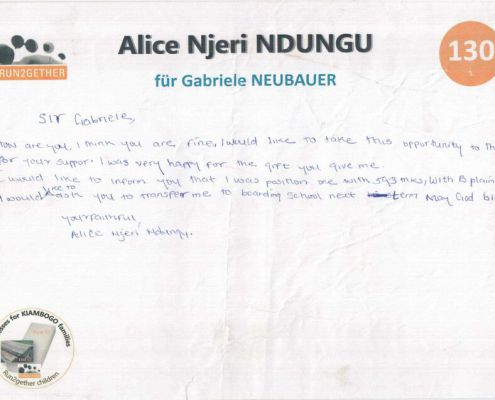 Alice Njeri NDUNGU
130
RUN2GETHER
für Gabriele NEUBAUER
Sir Gabriele,
How are you, I think you are fine, I would like to take this opportunity to th
for your support. I was very happy for the gift you give me.
I would like to inform you that I was position one with 593 mks, With B plain
I would like to ask you to transfer me to boarding school next term May God bl
yourfaithful,
Alice Njeri Ndungu.
sses for KIAMBOGO families
Run2gether children